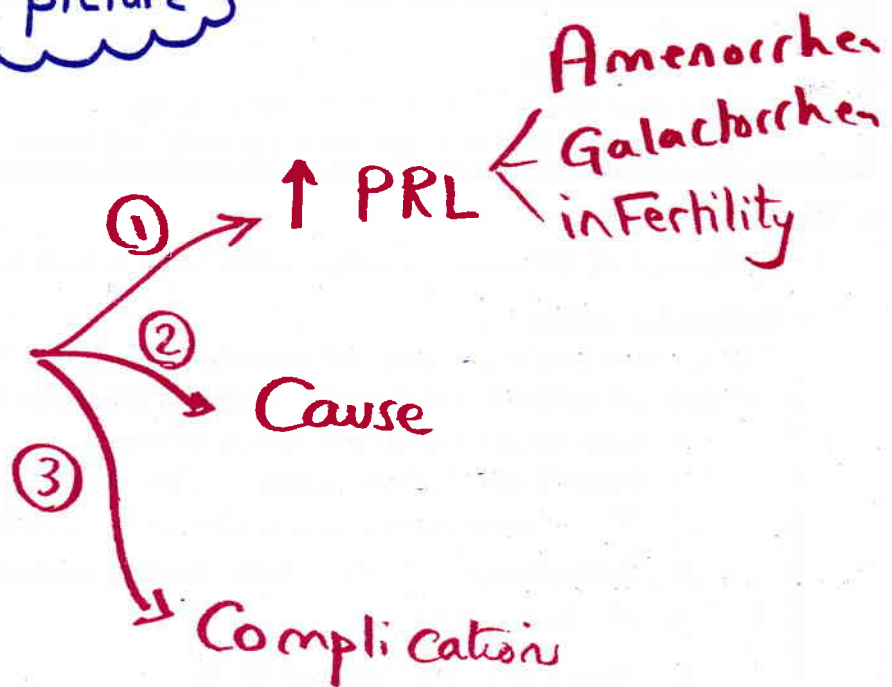 picture
Amenorrhea
① ↑ PRL < Galactorrhea
inFertility
② Cause
③ Complication